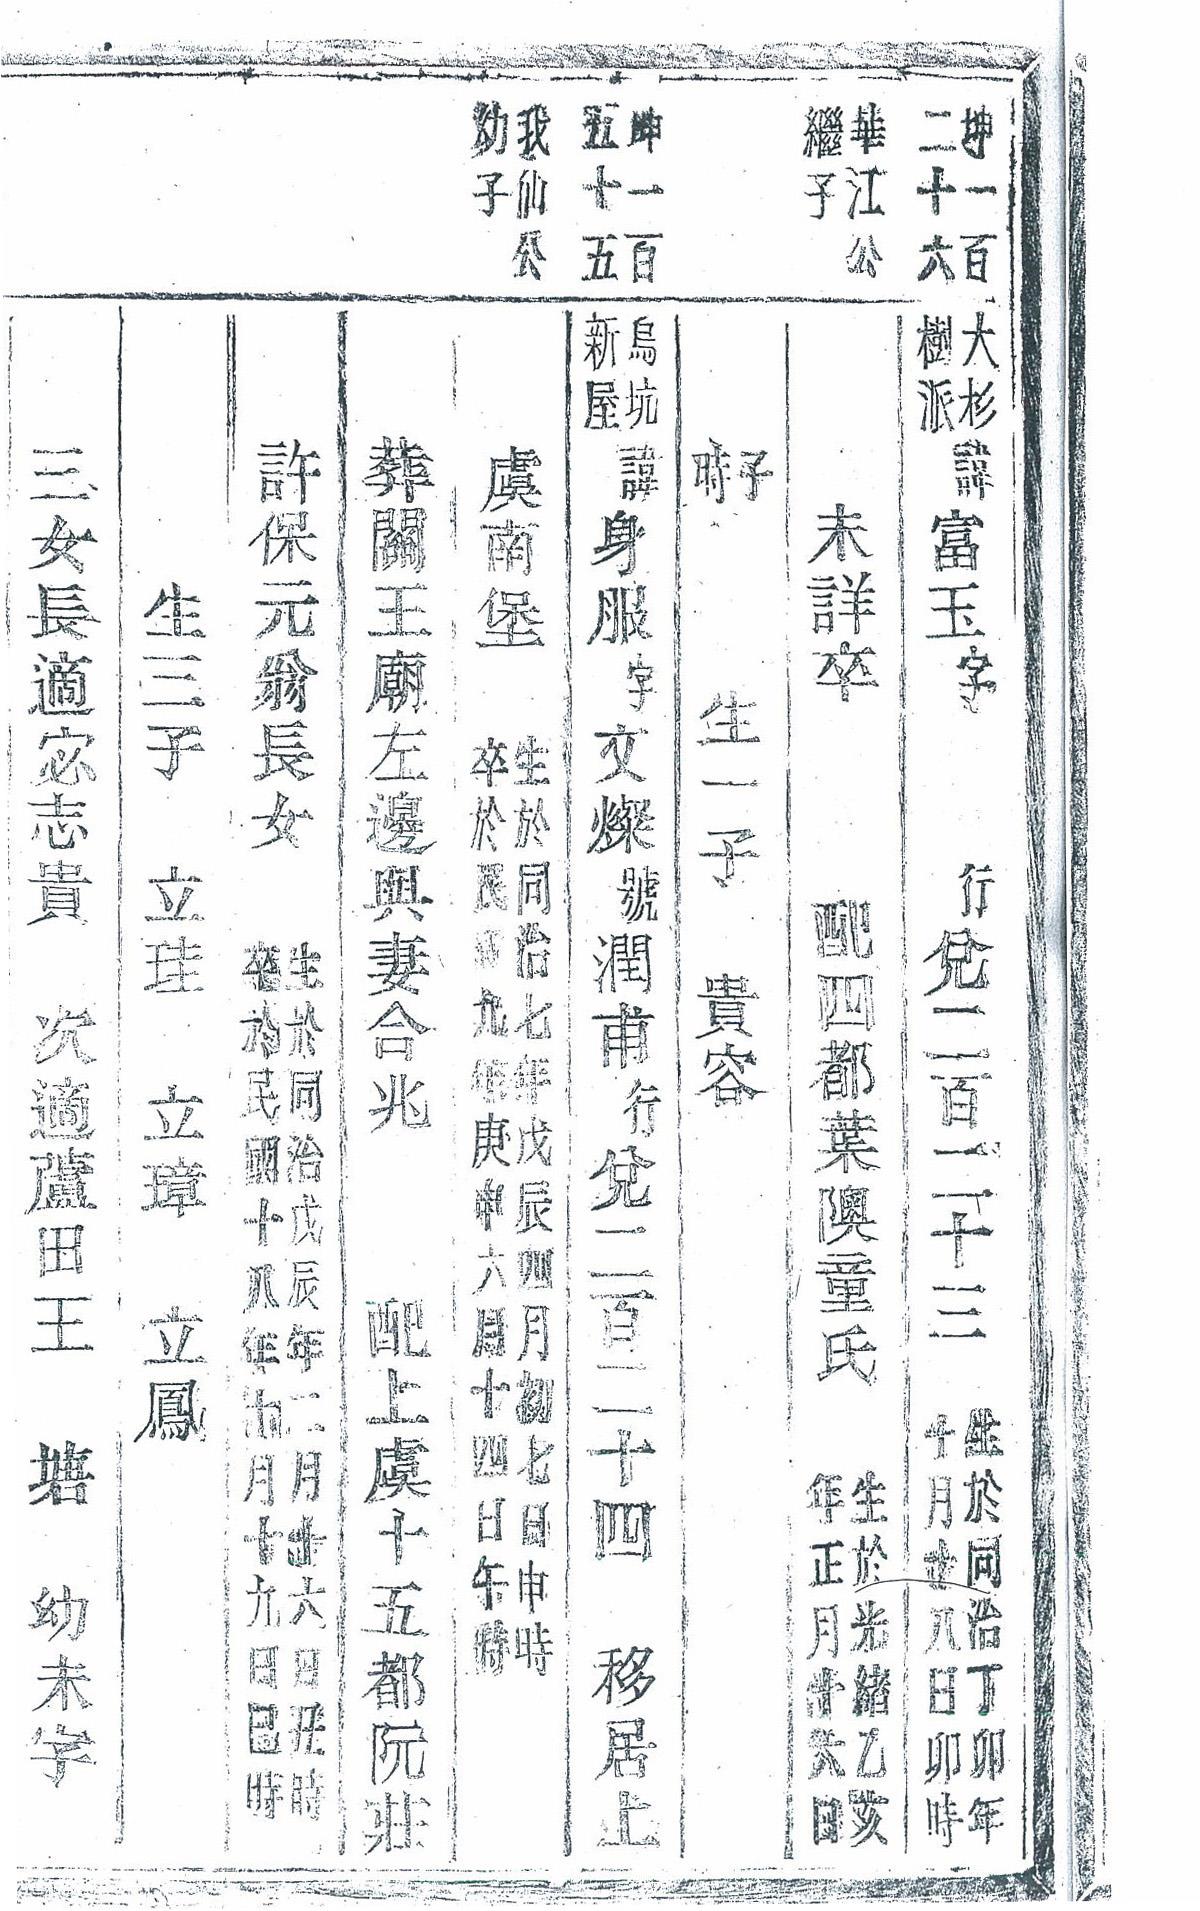 坤一百
二十六
華江公
繼子
坤一百
五十五
我仙公
幼子
大杉
樹派
諱富玉字 行兌二百二十三
生於同治丁卯年
十月廿八日卯時
未詳卒 配四都葉隩童氏
生於光緒乙亥
年正月廿六日
子
時
生一子 貴容
烏坑
新屋
諱身服字文燦號潤甫行兌二百二十四 移居上
虞南堡
生於同治七年戊辰四月初七日申時
卒於民國九年庚申六月十四日午時
葬關王廟左邊與妻合兆 配上虞十五都阮莊
許保元翁長女
生於同治戊辰年二月廿六日丑時
卒於民國十八年 月十九日巳時
生三子 立珪 立璋 立鳳
三女長適宓志貴 次適蘆田王 塘 幼未字